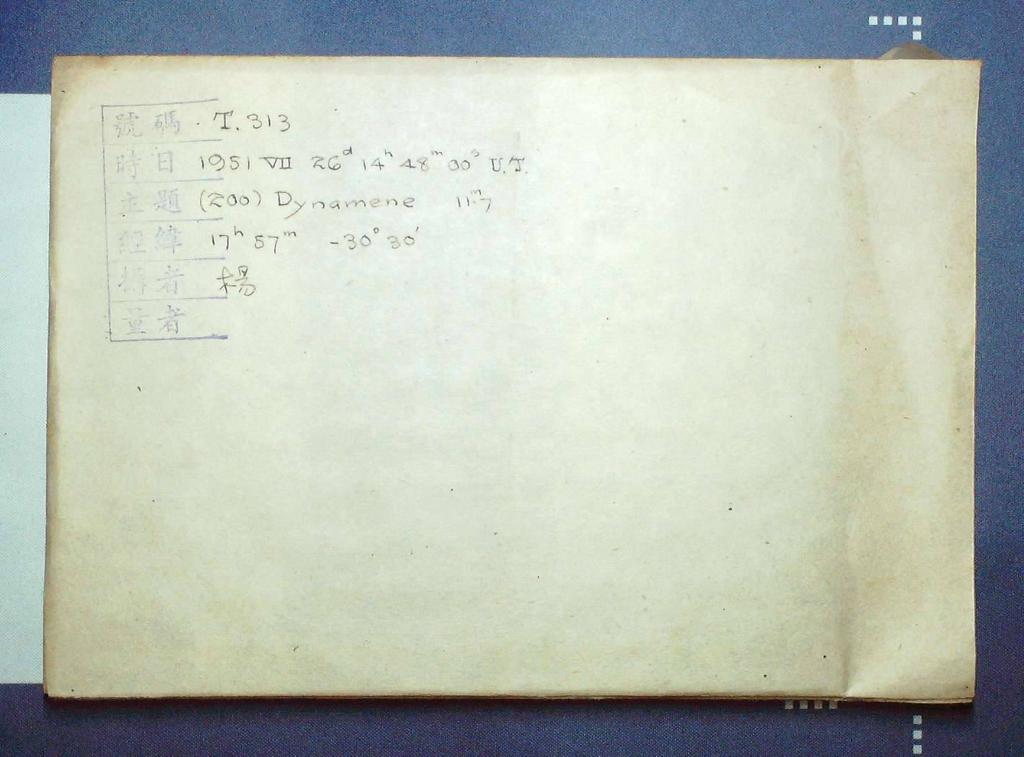 號碼 T. 313
時日 1951 VII 26ᵈ 14ʰ 48ᵐ 00ˢ U.T.
主題 (200) Dynamene 11ᵐ.7
經緯 17ʰ 57ᵐ -30° 30′
攝者 楊
量者